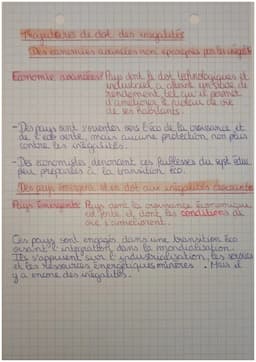 Trajectoires de dvt des inégalités
Des économies avancées non épargnées par les inégalités
Economie avancées: Pays dont le dvt technologique et
industriel a atteint un stade de
rendement tel qu'il permet
d'améliorer le niveau de vie
de ses habitants.
- Des pays sont orientés vers l'éco de la croissance et
de l'éco verte mais aucune protection non plus
contre les inégalités.
- Des économistes dénoncent ces faiblesses du syst
peu préparées à la transition éco.
Des pays émergents et en dvt aux inégalités
Pays Emergents: Pays dont la croissance économique
est forte et dont les conditions de
vie s'améliorent.
Ces pays sont engagés dans une transition éco
visant l'intégration dans la mondialisation.
Ils s'appuient sur l'industrialisation, les services
et les ressources énergétiques minières. Mais il
y a encore des inégalités.